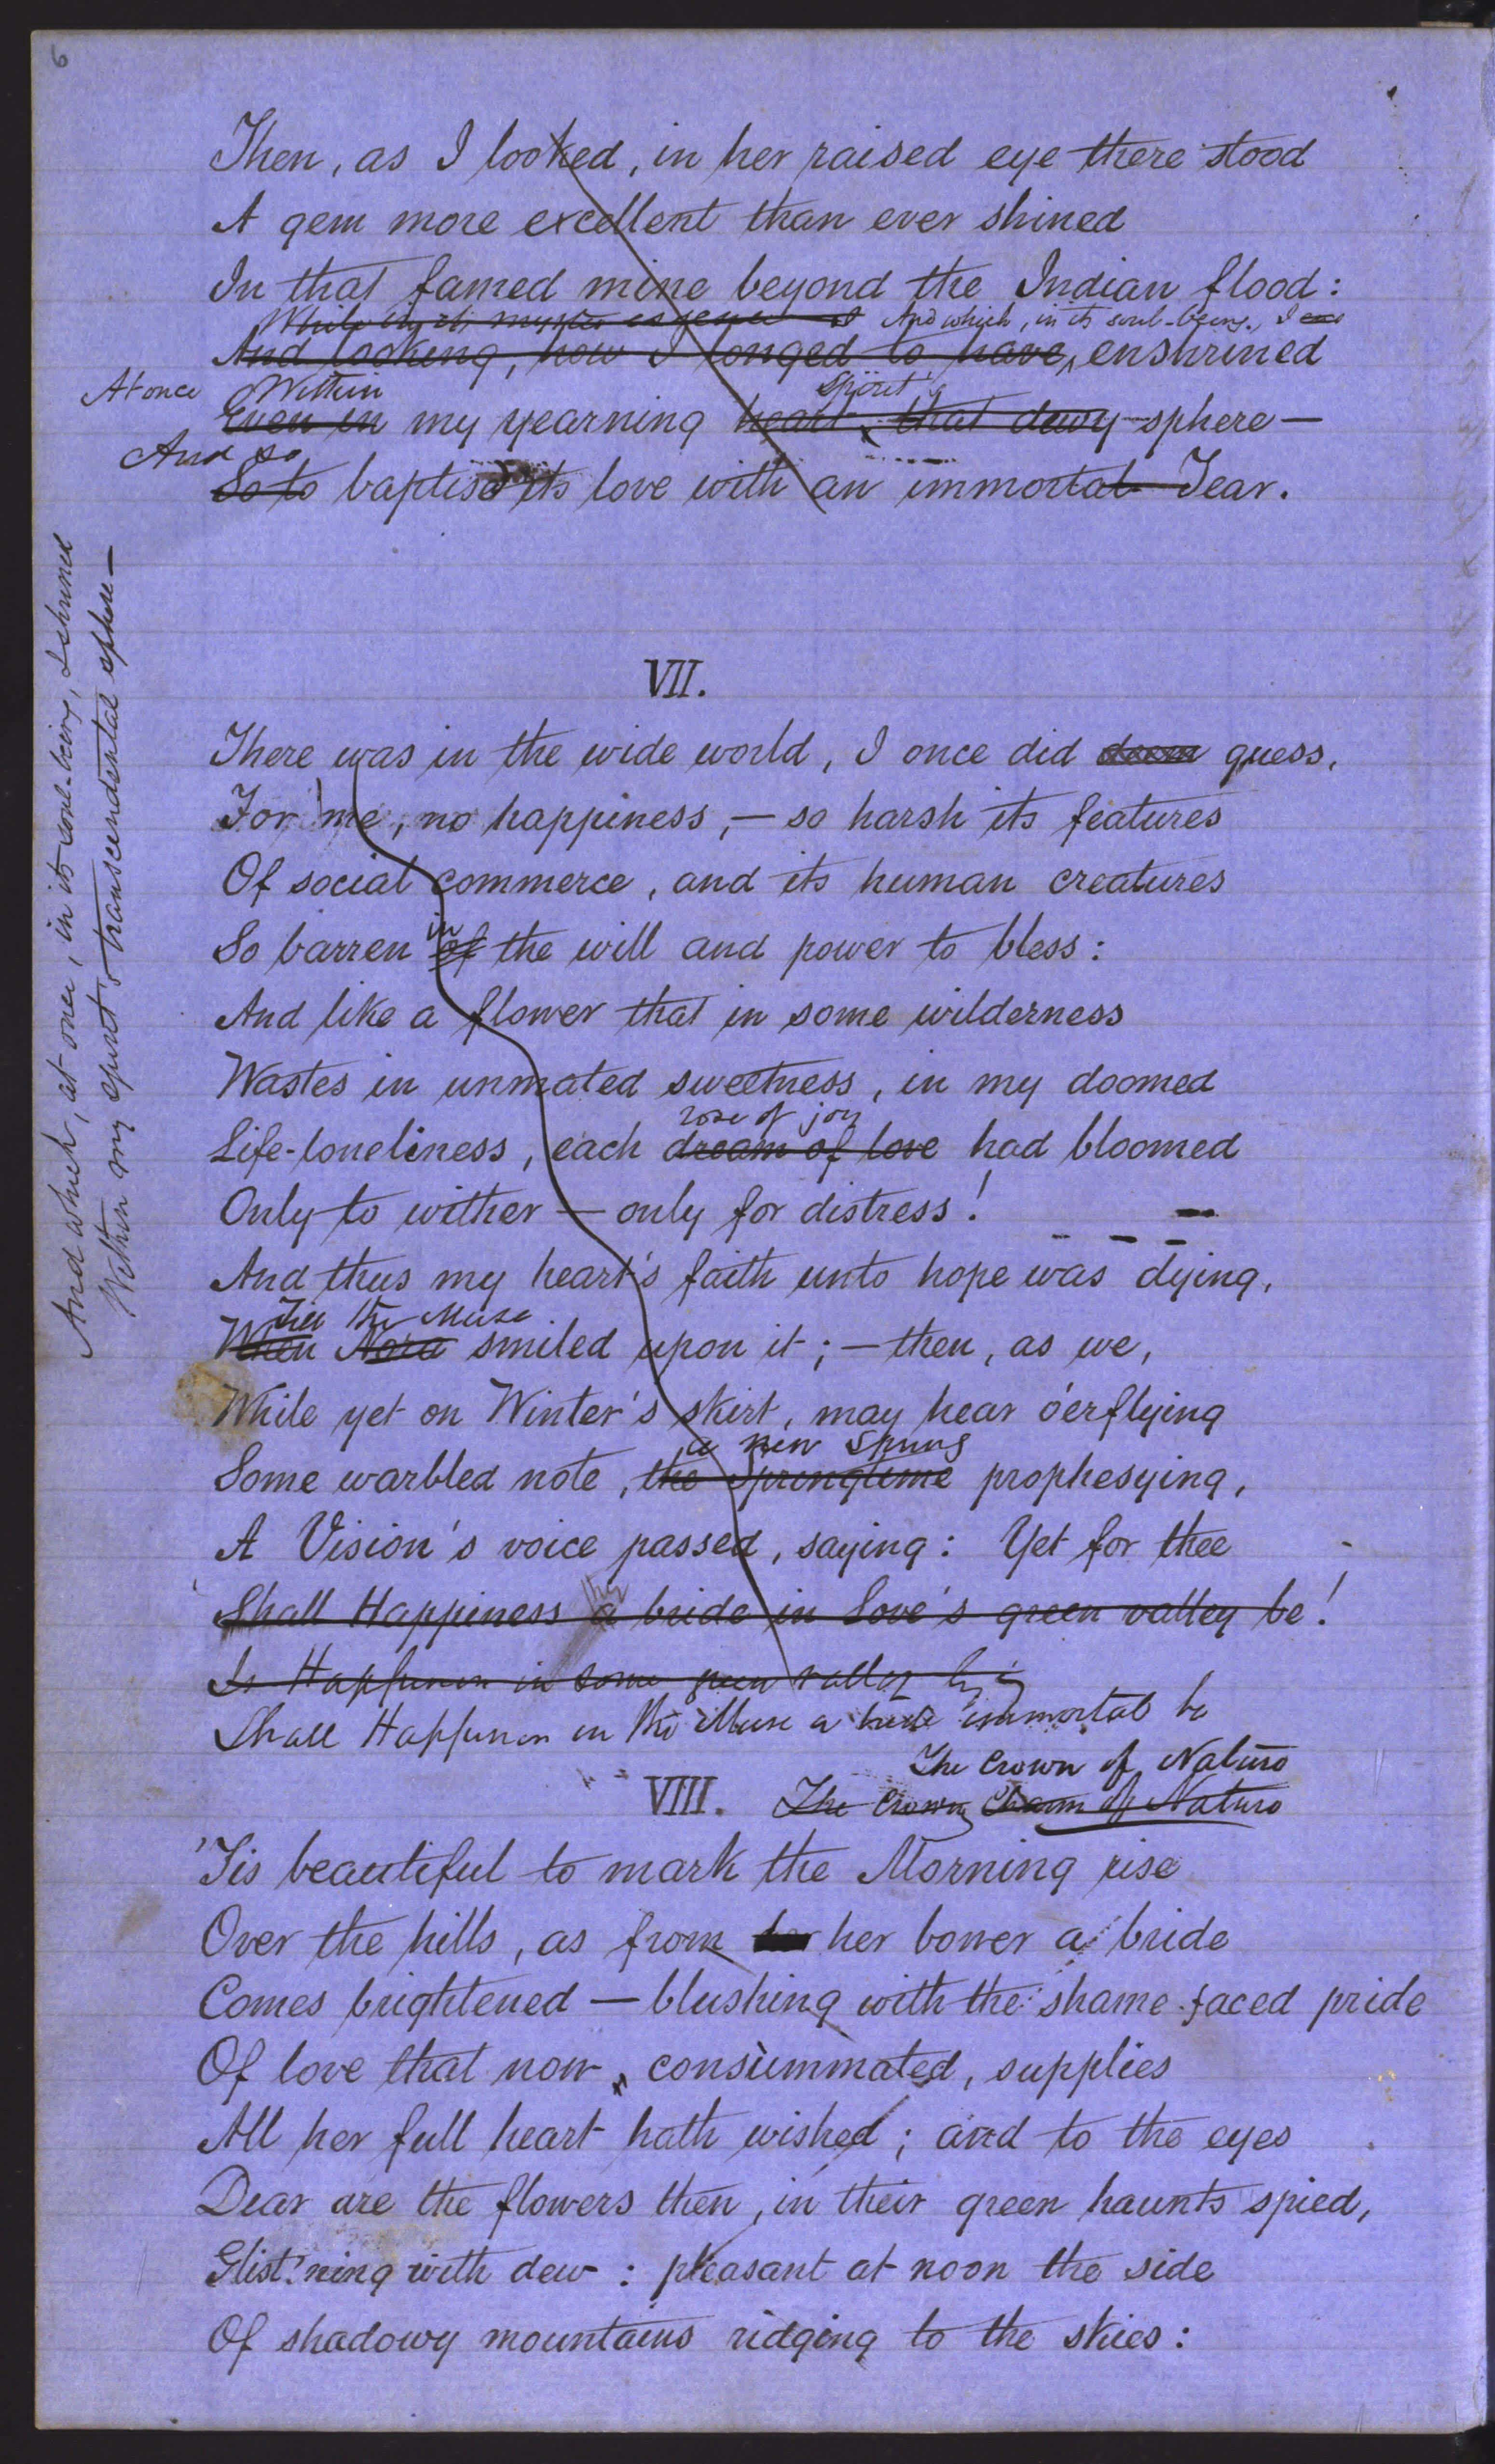 6
Then, as I looked, in her raised eye there stood
A gem more excellent than ever shined
In that famed mine beyond the Indian flood:
While in its And which, in its soul-being, I
And looking, how I longed to have, enshrined
At once Within spirit's
Even in my yearning heart, that dewy sphere—
And so
So to baptise its love with an immortal Tear.
And which, at once, in its soul-being, I shrined
Within my spirit's transcendental sphere—
VII.
There was in the wide world, I once did deem guess,
For me, no happiness,—so harsh its features
Of social commerce, and its human creatures
in
So barren of the will and power to bless:
And like a flower that in some wilderness
Wastes in unmated sweetness, in my doomed
rose of joy
Life-loneliness, each dream of love had bloomed
Only to wither—only for distress!
And thus my heart's faith unto hope was dying,
Till the Muse
When Nora smiled upon it;—then, as we,
While yet on Winter's skirt, may hear o'erflying
a new Spring
Some warbled note, the Springtime prophesying,
A Vision's voice passed, saying: Yet for thee
thy
Shall Happiness a bride in Love's green valley be!
Is Happiness in some green valley
Shall Happiness in the Muse a bride immortal be
The Crown of Nature
VIII. The Crowning Charm of Nature
'Tis beautiful to mark the Morning rise
Over the hills, as from her her bower a bride
Comes brightened—blushing with the shame-faced pride
Of love that now, consummated, supplies
All her full heart hath wished; and to the eyes
Dear are the flowers then, in their green haunts spied,
Glist'ning with dew: pleasant at noon the side
Of shadowy mountains ridging to the skies: